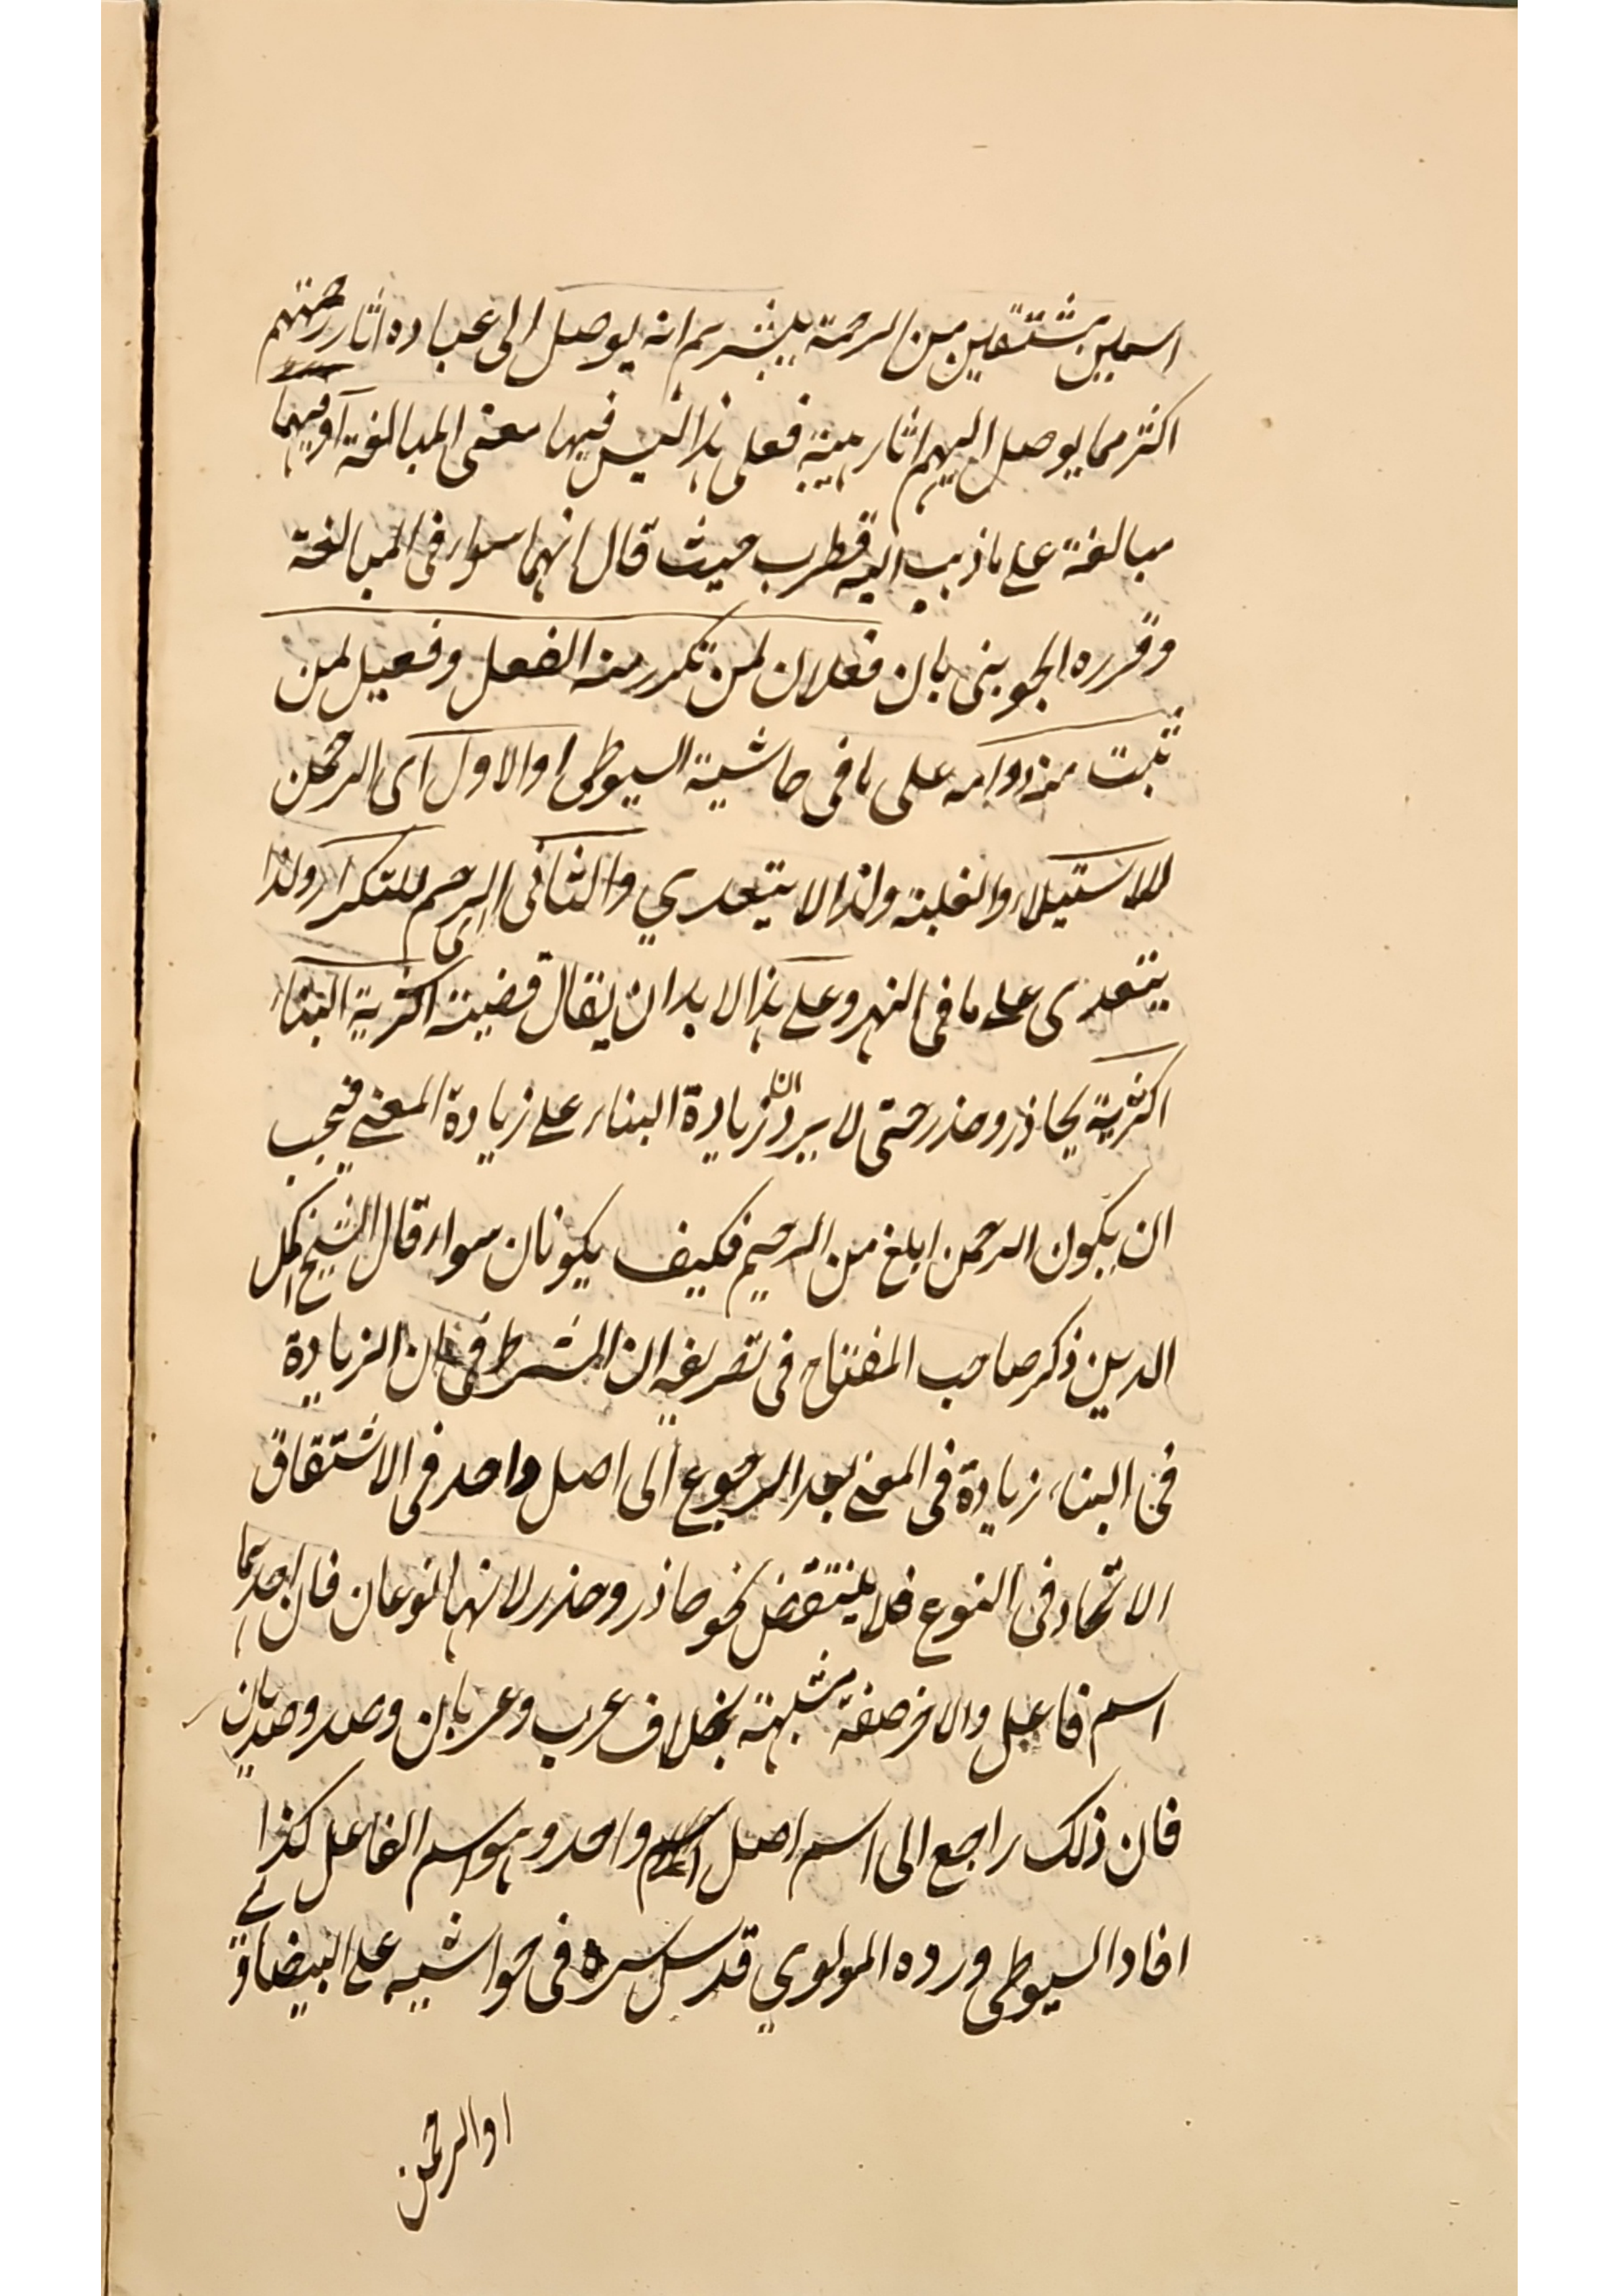 اسمين مشتقين من الرحمة يبشرهم انه يوصل الى عباده اثار رحمتهم
اكثر مما يوصل اليهم اثار هيبة فعلى هذا ليس فيها معنى المبالغة او فيهما
مبالغة على ما ذهب اليه قطرب حيث قال انهما سواء فى المبالغة
وقرره الجوينى بان فعلان لمن تكرر منه الفعل وفعيل لمن
ثبت منه دوامه على ما فى حاشية السيوطى او الاول اى الرحمن
للاستيلاء والغلبة ولذا لا يتعدي والثانى اى الرحيم للتكرار ولذا
يتعدى على ما فى النهر وعلى هذا لا بد ان يقال قضية اكثرية البناء
اكثرية يحاذر وحذر حتى لا يرد ان زيادة البناء على زيادة المعنى فيجب
ان يكون الرحمن ابلغ من الرحيم فكيف يكونان سواء قال الشيخ اكمل
الدين ذكر صاحب المفتاح فى تصريفه ان الشرط فى ان الزيادة
فى البناء زيادة فى المعنى بعد الرجوع الى اصل واحد فى الاشتقاق
الاتحاد فى النوع فلا ينتقض نحو حاذر وحذر لانهما نوعان فان احدهما
اسم فاعل والاخر صفة مشبهة بخلاف غرب وغربان وصد وصديان
فان ذلك راجع الى اسم اصل واحد وهو اسم الفاعل كذا
افاد السيوطى ورده المولوي قدس سره فى حواشيه على البيضاوى
او الرحمن